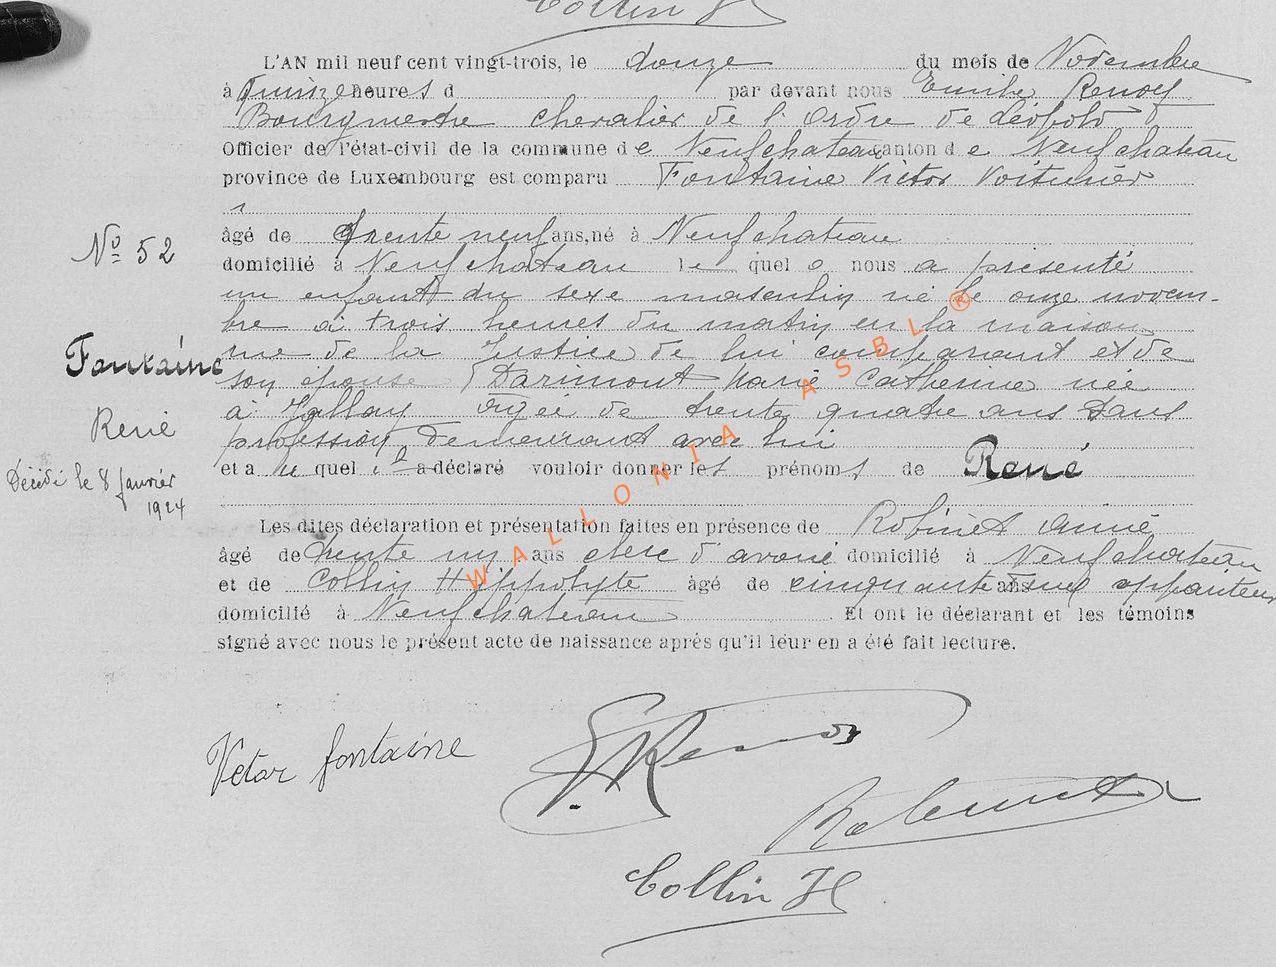 Collin H
L'AN mil neuf cent vingt-trois, le douze du mois de Novembre
à quinze heures d par devant nous Emile Renoy
Bourgmestre chevalier de l'ordre de Léopold
Officier de l'état-civil de la commune de Neufchateau canton de Neufchateau
province de Luxembourg est comparu Fontaine Victor Voiturier
âgé de trente neuf ans, né à Neufchateau
N° 52
domicilié à Neufchateau lequel nous a présenté
un enfant du sexe masculin né le onze novem-
bre à trois heures du matin en la maison
Fontaine
rue de la Justice de lui comparant et de
son épouse Darimont Marie Catherine née
à agée de trente quatre ans sans
René
profession, demeurant avec lui
et a u quel il a déclaré vouloir donner les prénoms de René
Décédé le 8 janvier
1924
Les dites déclaration et présentation faites en présence de Robinet Aimé
âgé de trente un ans clerc d'avoué domicilié à Neufchateau
et de Collin Hippolyte âgé de cinquante ans appariteur
domicilié à Neufchateau Et ont le déclarant et les témoins
signé avec nous le présent acte de naissance après qu'il leur en a été fait lecture.
Victor fontaine
E Renoy
Collin H
WALLONIA ASBL ®